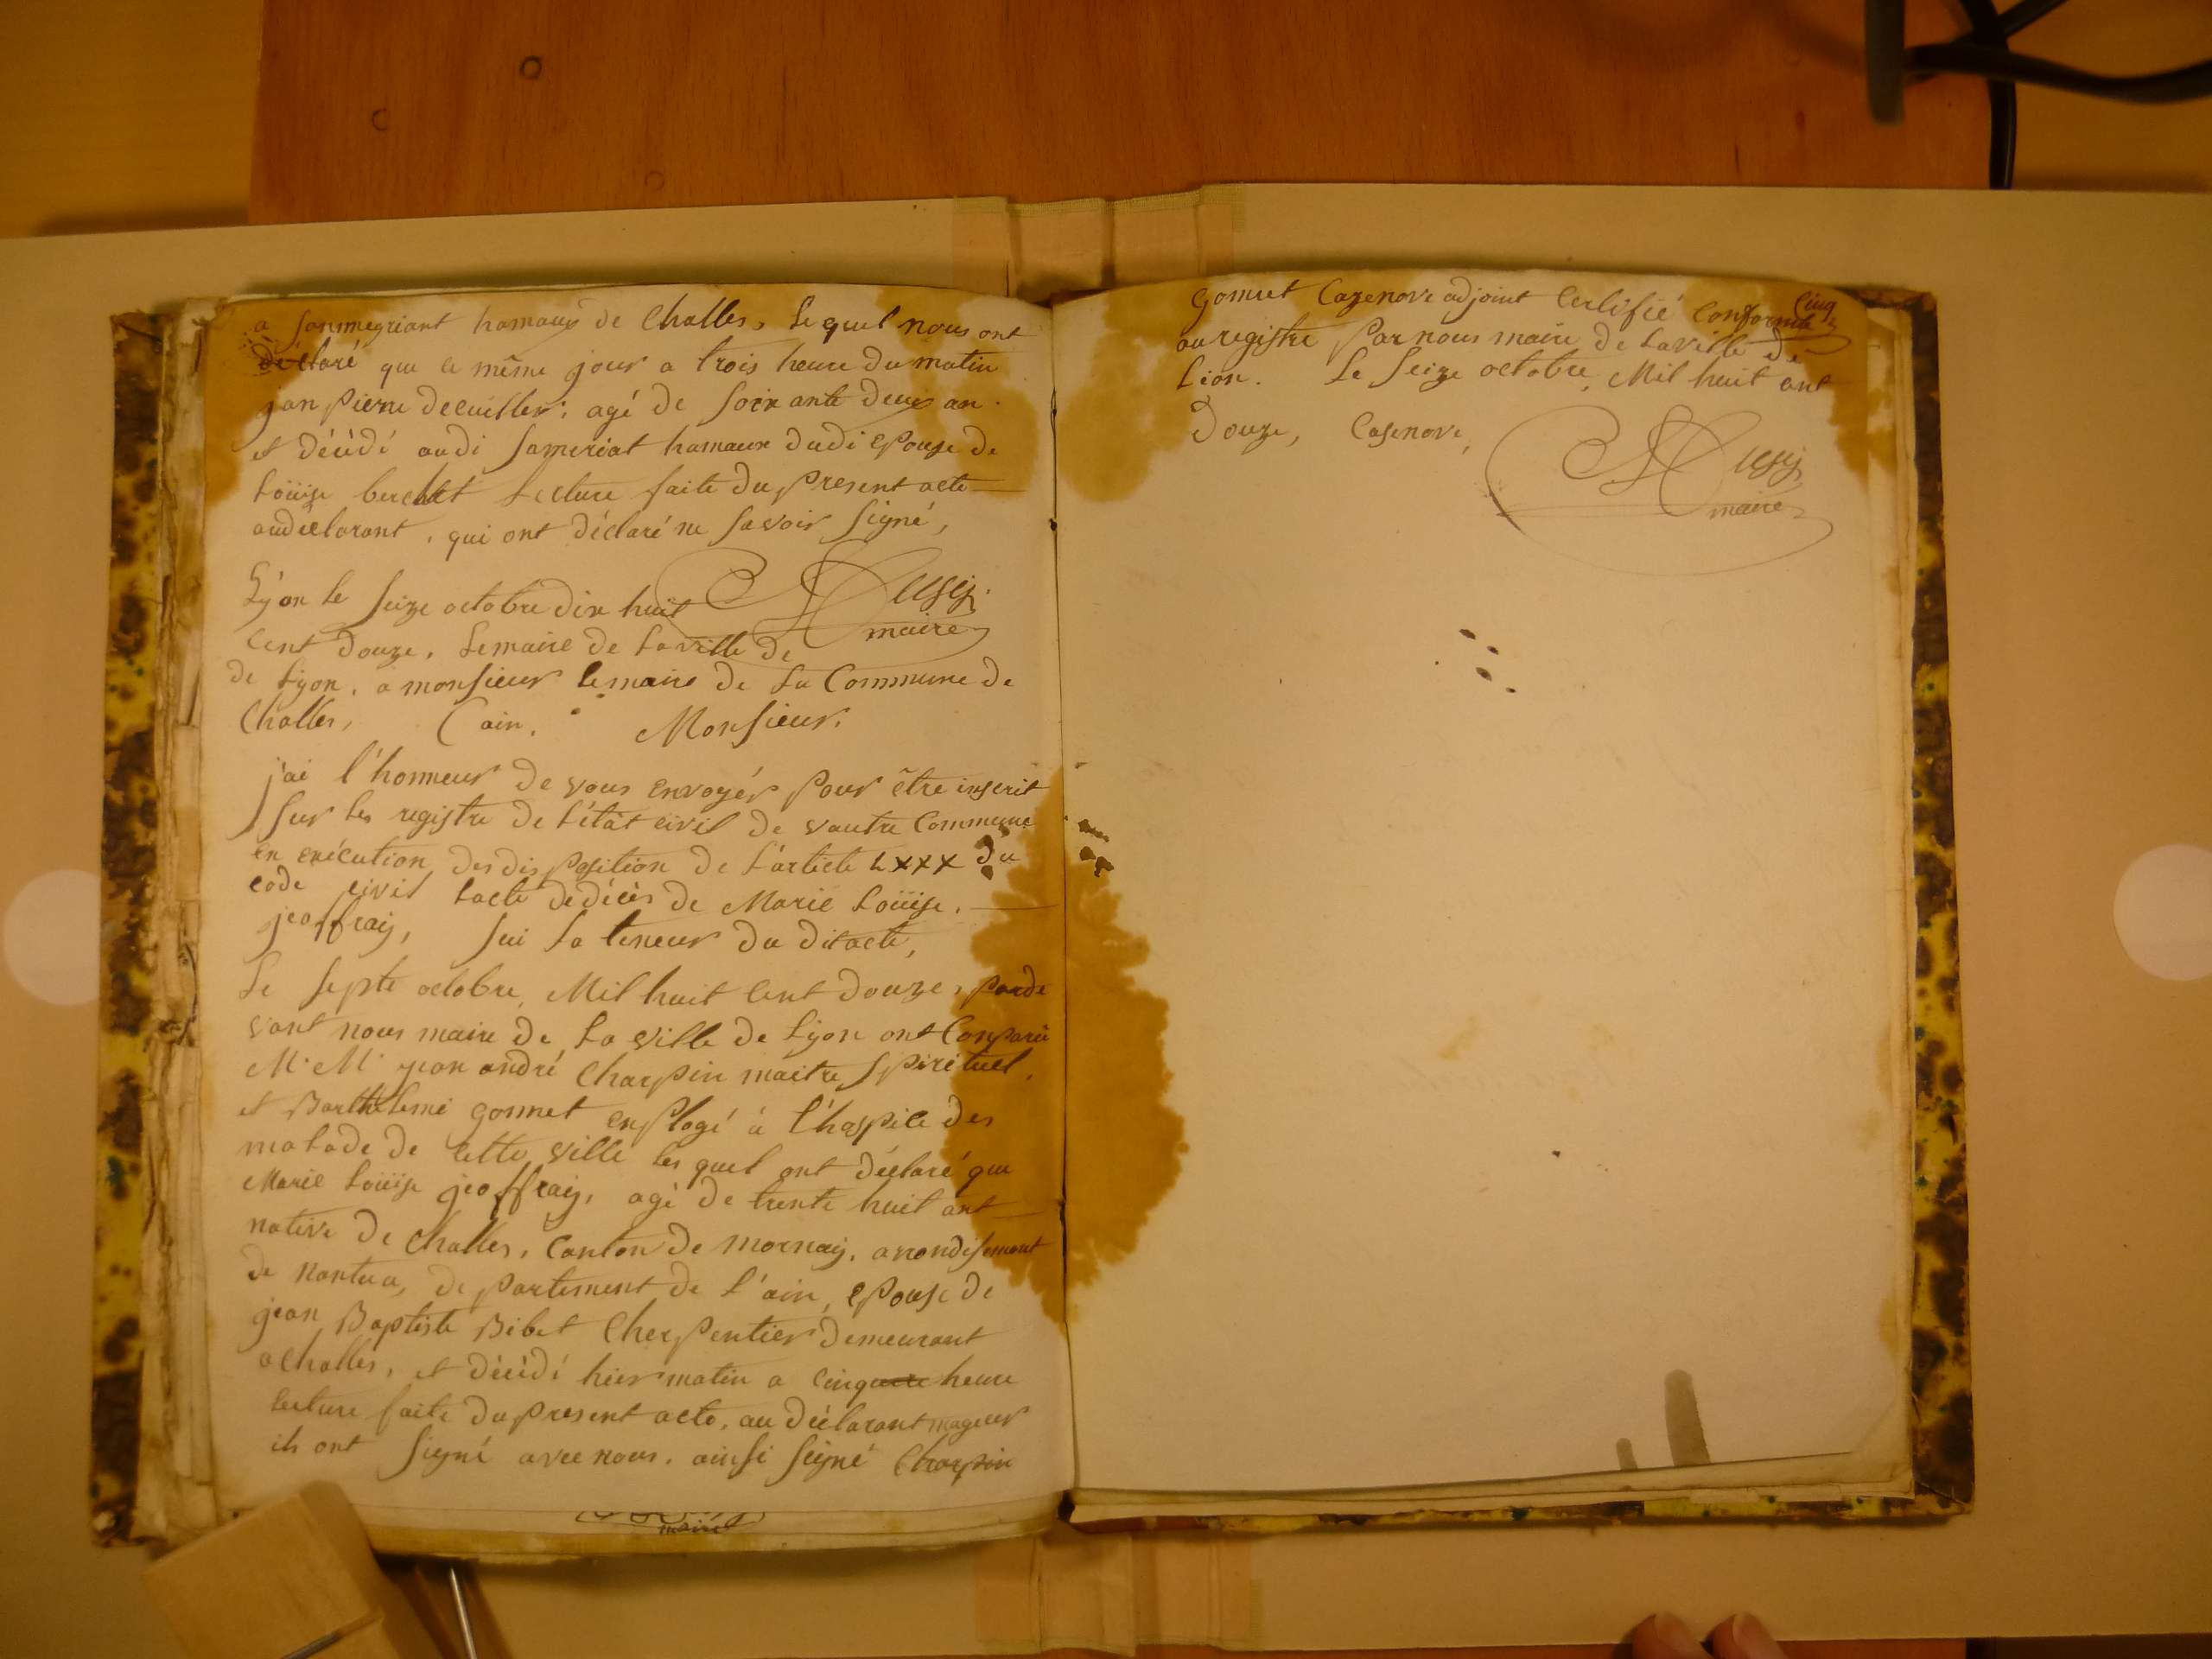 a Sonmegriant hamaux de Challes, Le quel nous ont
déclaré que ce même jour a trois heure du matin
jan pierre decuiller, agé de soix ante deux an.
et décédé audi Sameriat hamaux dudi epouze de
Loüise berchet Lecture faite du present acte
audéclarant, qui ont déclaré ne savoir signé,
maire
Lÿon le seize octobre dix huit
cent douze. Lemaire de Laville de
de Lyon. a monsieur le maire de La Commune de
Challes, (ain. Monsieur.
j'ai l'honneur de vous envoyér pour être inscrit
sur les registre de L'état civil de vautre Commune
en exécution des disposition de L'article LXXX du
code civil Lacte dedécès de Marie Loüise.
jeoffray, sui La teneur du dit acte,
Le septe octobre, Mil huit cent douze, parde
vant nous maire de La ville de Lyon ont Conparü
M. M. jean andré Charpin maitre spirituel,
et Barthelemi gonnet enplogé à L'haspice des
malade de cette ville les quel ont déclaré que
Marie Loüise jeoffray, agé de trente huit ant
native de Challes, Canton de mornay, arrondisemant
de Nantua, de partement de L'ain, epouse de
jean Baptiste Bibet Cherpentier demeurant
a Challes, et décédé hier matin a cinq heure
lecture faite du present acte, au déclarant mageur
ils ont signé avec nous. ainsi signé Charpin
maire
Cinq
gonnet Cazenove adjoint Certifié Conforme
au registre par nous maire de Laville de
Lion. Le seize octobre, Mil huit cent
douze, Casenove,
maire